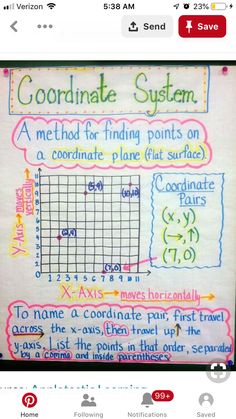 Verizon
5:38 AM
23%
Send
Save
Coordinate System
A method for finding points on
a coordinate plane (flat surface).
Y-Axis → moves
vertically
(5,9)
(10,10)
(2,4)
(7,0)
1 2 3 4 5 6 7 8 9 10 11
X-Axis → moves horizontally →
Coordinate
Pairs
(x, y)
(→,↑)
(7, 0)
To name a coordinate pair, first travel
across the x-axis, then travel up↑ the
y-axis. List the points in that order, separated
by a comma and inside parentheses.
99+
Home
Following
Notifications
Saved